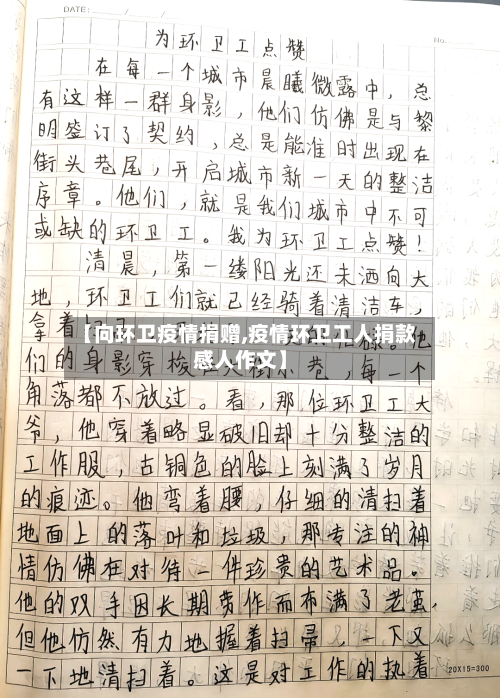 DATE: / /
No.
为环卫工点赞
在每一个城市晨曦微露中，总
有这样一群身影，他们仿佛是与黎
明签订了契约，总是能准时出现在
街头巷尾，开启城市新一天的整洁
序章。他们，就是我们城市中不可
或缺的环卫工。我为环卫工点赞！
清晨，第一缕阳光还未洒向大
地，环卫工们就已经骑着清洁车，
拿着
【向环卫疫情捐赠,疫情环卫工人捐款
感人作文】
们的身影穿梭
巷，每一个
角落都不放过。看，那位环卫工大
爷，他穿着略显破旧却十分整洁的
工作服，古铜色的脸上刻满了岁月
的痕迹。他弯着腰，仔细的清扫着
地面上的落叶和垃圾，那专注的神
情仿佛在对待一件珍贵的艺术品。
他的双手因长期劳作而布满了老茧，
但他仍然有力地握着扫帚，一下又
一下地清扫着。这是对工作的执着
20X15=300